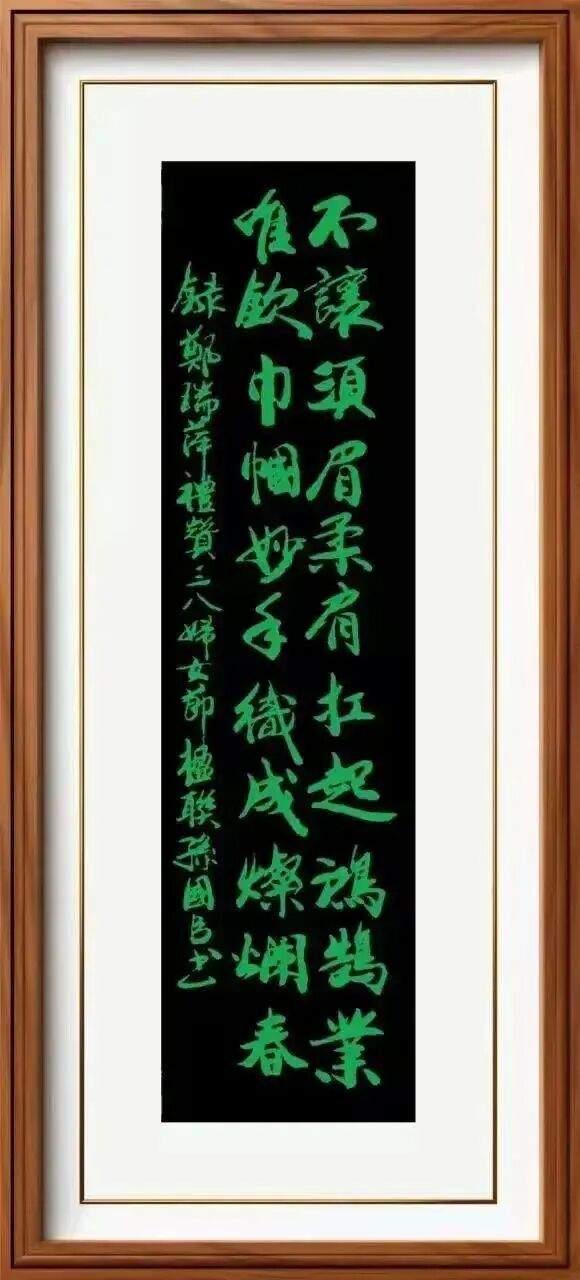 不讓須眉柔肩扛起鴻鵠業
唯欽巾幗妙手織成燦爛春
錄鄭瑞萍禮贊三八婦女節楹聯孫國书